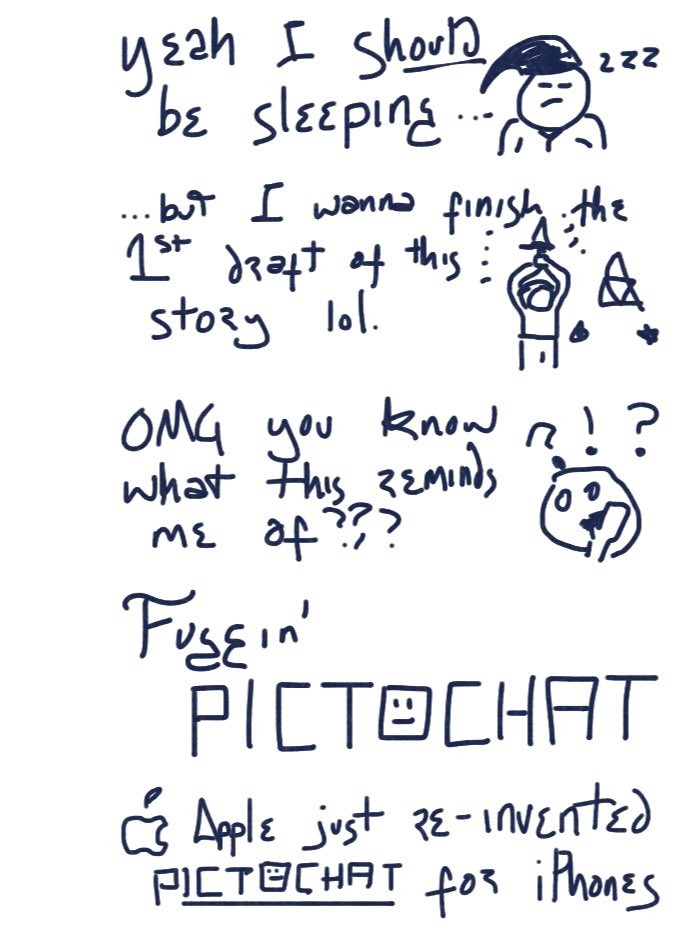 yeah I should
zzz
be sleeping...
...but I wanna finish the
1st draft of this
story lol.
OMG you know ?!?
what this reminds
me of ???
Fuggin'
PICTOCHAT
Apple just re-invented
PICTOCHAT for iPhones